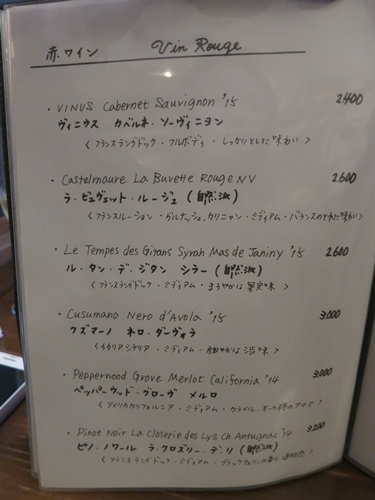 赤ワイン Vin Rouge
・VINUS Cabernet Sauvignon '15 2.400
ヴィニウス カベルネ・ソーヴィニヨン
〈フランスラングドック・フルボディ・しっかりとした味わい〉
・Castelmaure La Buvette Rouge NV 2.600
ラ・ビュヴェット・ルージュ (自然派)
〈フランスルーション・グルナッシュ,カリニャン・ミディアム・バランスのとれた味わい〉
・Le Tempes des Gitans Syrah Mas de Janiny '15 2.600
ル・タン・デ・ジタン シラー (自然派)
〈フランスラングドック・ミディアム・まろやかな果実味〉
・Cusumano Nero d'Avola '15 3.000
クズマーノ ネロ・ダーヴォラ
〈イタリアシチリア・ミディアム・細やかな渋味〉
・Pepperwood Grove Merlot California '14 3.000
ペッパーウッド・グローヴ メルロ
〈アメリカカリフォルニア・ミディアム・カラメル,オーク樽のアロマ〉
・Pinot Noir La Closerie des Lys Ch Antugnac '14 3.200
ピノ・ノワール ラ・クロズリー・デ・リ (自然派)
〈フランスラングドック・ミディアム・ブラックチェリーの香り